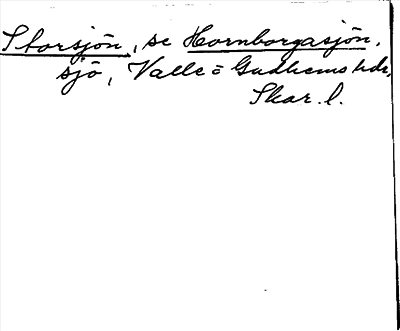 Storsjön, se Hornborgasjön,
sjö, Valle o Gudhems hdr,
Skar. l.